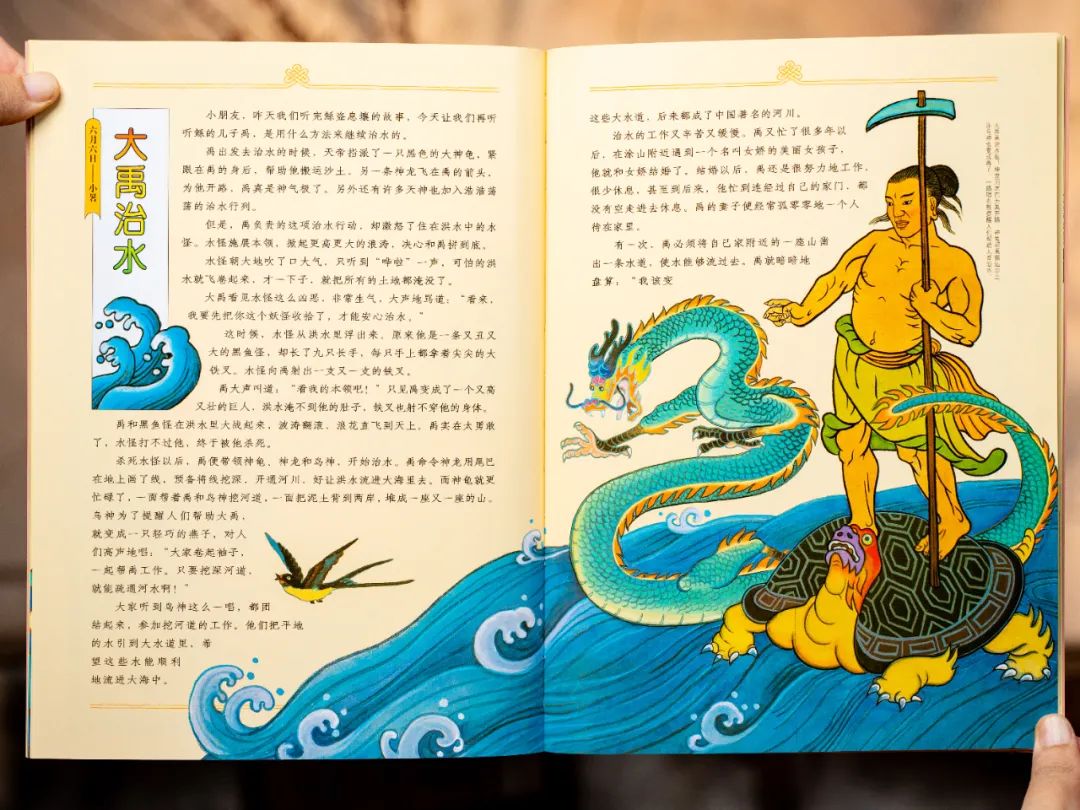 六月六日——小暑
大禹治水
小朋友，昨天我们听完鲧盗息壤的故事，今天让我们再听
听鲧的儿子禹，是用什么方法来继续治水的。
禹出发去治水的时候，天帝指派了一只黑色的大神龟，紧
跟在禹的身后，帮助他搬运沙土。另一条神龙飞在禹的前头，
为他开路，禹真是神气极了。另外还有许多天神也加入浩浩荡
荡的治水行列。
但是，禹负责的这项治水行动，却激怒了住在洪水中的水
怪。水怪施展本领，掀起更高更大的浪涛，决心和禹拼到底。
水怪朝大地吹了口大气，只听到“哗啦”一声，可怕的洪
水就飞卷起来，才一下子，就把所有的土地都淹没了。
大禹看见水怪这么凶恶，非常生气，大声地骂道：“看来，
我要先把你这个妖怪收拾了，才能安心治水。”
这时候，水怪从洪水里浮出来，原来他是一条又丑又
大的黑鱼怪，却长了九只长手，每只手上都拿着尖尖的大
铁叉。水怪向禹射出一支又一支的铁叉。
禹大声叫道：“看我的本领吧！”只见禹变成了一个又高
又壮的巨人，洪水淹不到他的肚子，铁叉也射不穿他的身体。
禹和黑鱼怪在洪水里大战起来，波涛翻滚，浪花直飞到天上。禹实在太勇敢
了，水怪打不过他，终于被他杀死。
杀死水怪以后，禹便带领神龟、神龙和鸟神，开始治水。禹命令神龙用尾巴
在地上画了线，预备将线挖深，开通河川，好让洪水流进大海里去。而神龟就更
忙碌了，一面帮着禹和鸟神挖河道，一面把泥土背到两岸，堆成一座又一座的山。
鸟神为了提醒人们帮助大禹，
就变成一只轻巧的燕子，对人
们高声地唱：“大家卷起袖子，
一起帮禹工作。只要挖深河道，
就能疏通河水啊！”
大家听到鸟神这么一唱，都团
结起来，参加挖河道的工作。他们把平地
的水引到大水道里，希
望这些水能顺利
地流进大海中。
这些大水道，后来都成了中国著名的河川。
治水的工作又辛苦又缓慢。禹又忙了很多年以
后，在涂山附近遇到一个名叫女娇的美丽女孩子，
他就和女娇结婚了。结婚以后，禹还是很努力地工作，
很少休息，甚至到后来，他忙到连经过自己的家门，都
没有空走进去休息。禹的妻子便经常孤零零地一个人
待在家里。
有一次，禹必须将自己家附近的一座山凿
出一条水道，使水能够流过去。禹就暗暗地
盘算：“我该变